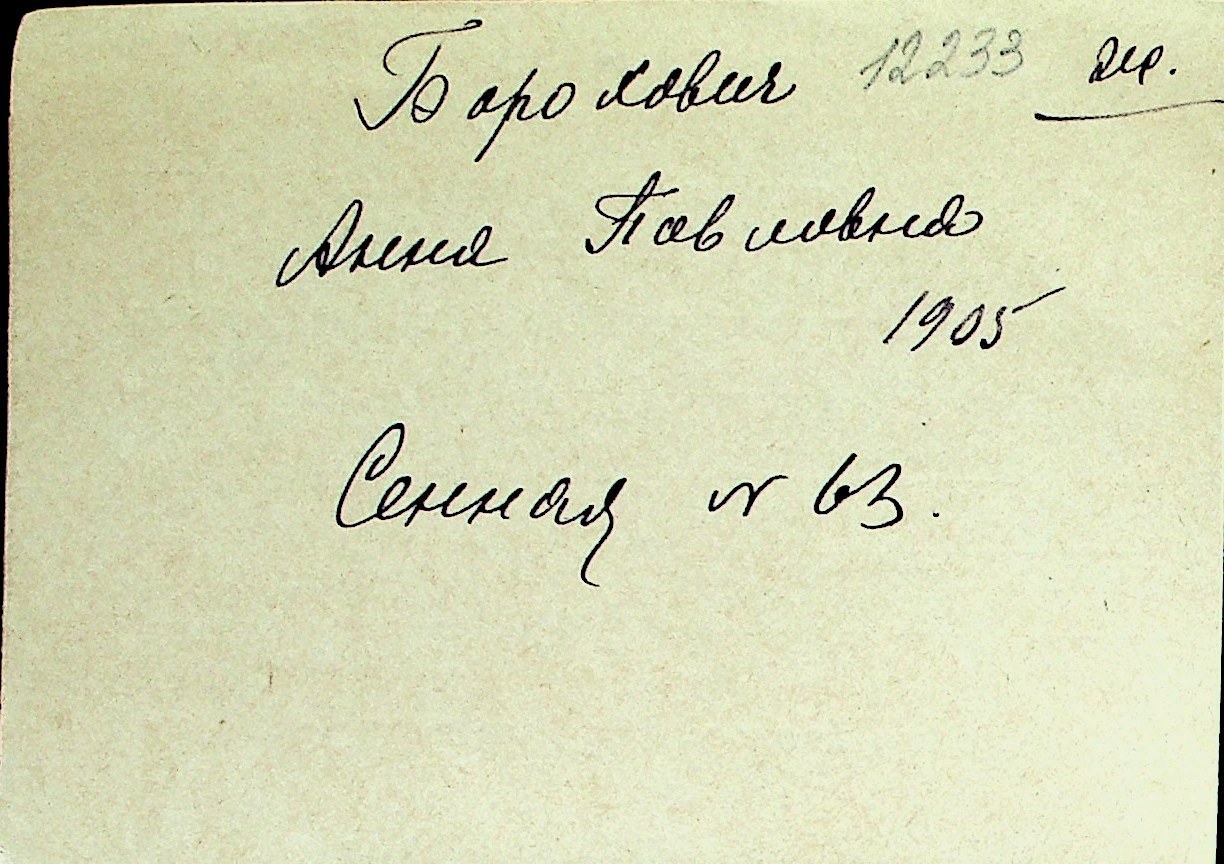 Борохович 12233 ж.
Анна Павловна
1905
Сенная № 63.